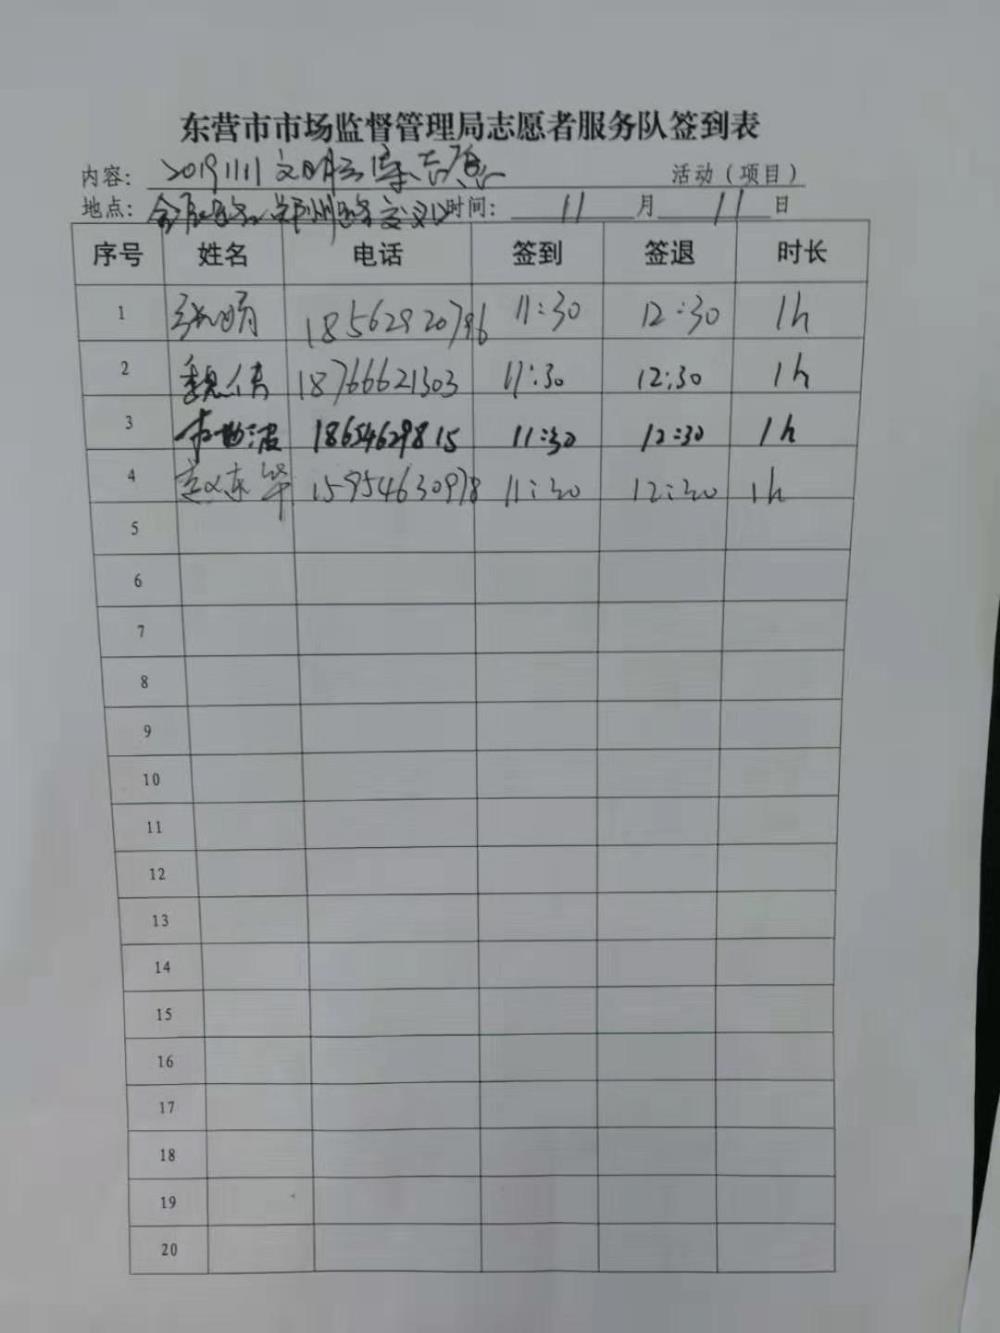 东营市市场监督管理局志愿者服务队签到表
内容: 20191111文明交通志愿 活动（项目）
地点: 路郑州路交叉口时间: 11 月 11 日
序号 姓名 电话 签到 签退 时长
1 18562920796 11:30 12:30 1h
2 魏倩 18766621303 11:30 12:30 1h
3 18654629815 11:30 12:30 1h
4 赵东华 15954630978 11:30 12:30 1h
5
6
7
8
9
10
11
12
13
14
15
16
17
18
19
20